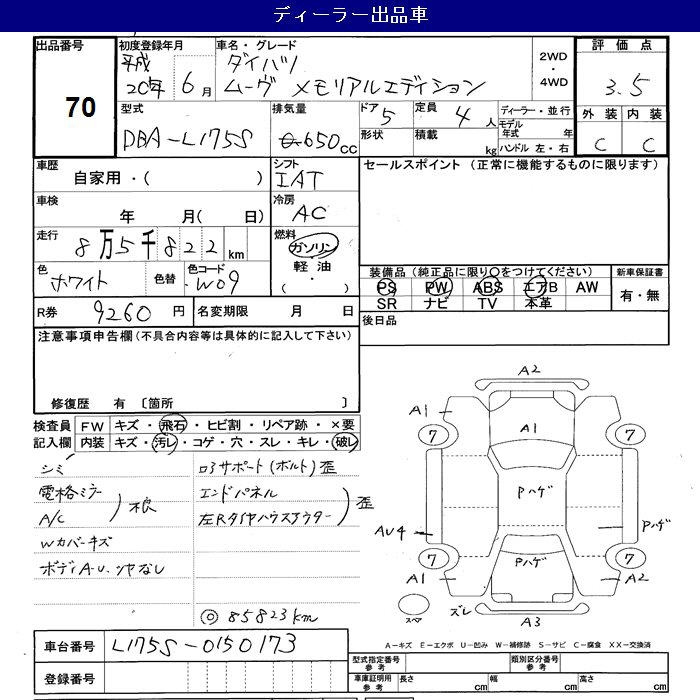 ディーラー出品車
出品番号 初度登録年月 車名・グレード 2WD・4WD 評価点
70 平成20年6月 ダイハツ
ムーヴ メモリアルエディション 3.5
型式 排気量 ドア 定員 ディーラー・並行 外装 内装
DBA-L175S 650cc 5 4人 モデル年式 年 C C
形状 積載 kg ハンドル 左・右
車歴 シフト セールスポイント (正常に機能するものに限ります)
自家用・( ) IAT
車検 冷房
年 月( 日) AC
走行 8万5千822km 燃料
ガソリン
軽油
色 色替 色コード
ホワイト W09
装備品 (純正品に限り○をつけてください) 新車保証書
PS PW ABS エアB AW 有・無
SR ナビ TV 本革
R券 9260円 名変期限 月 日 後日品
注意事項申告欄(不具合内容等は具体的に記入して下さい)
修復歴 有 〔箇所 〕
検査員 FW キズ・飛石・ヒビ割・リペア跡・×要
記入欄 内装 キズ・汚レ・コゲ・穴・スレ・キレ・破レ
シミ
電格ミラー
A/C 不良
Wカバーキズ
ボディA・U、ツヤなし
ロアサポート(ボルト)歪
エンドパネル
左Rタイヤハウスアウター 歪
◎85823km
A2
A1 A1
7 7
Pハゲ
AU4 Pハゲ
7 Pハゲ 7
A1 A2
スペア ズレ A3
車台番号 L175S-0150173
A-キズ E-エクボ U-凹み W-補修跡 S-サビ C-腐食 XX-交換済
登録番号 型式指定番号 参考 類別区分番号 参考
車庫証明用 参考 長さ cm 幅 cm 高さ cm